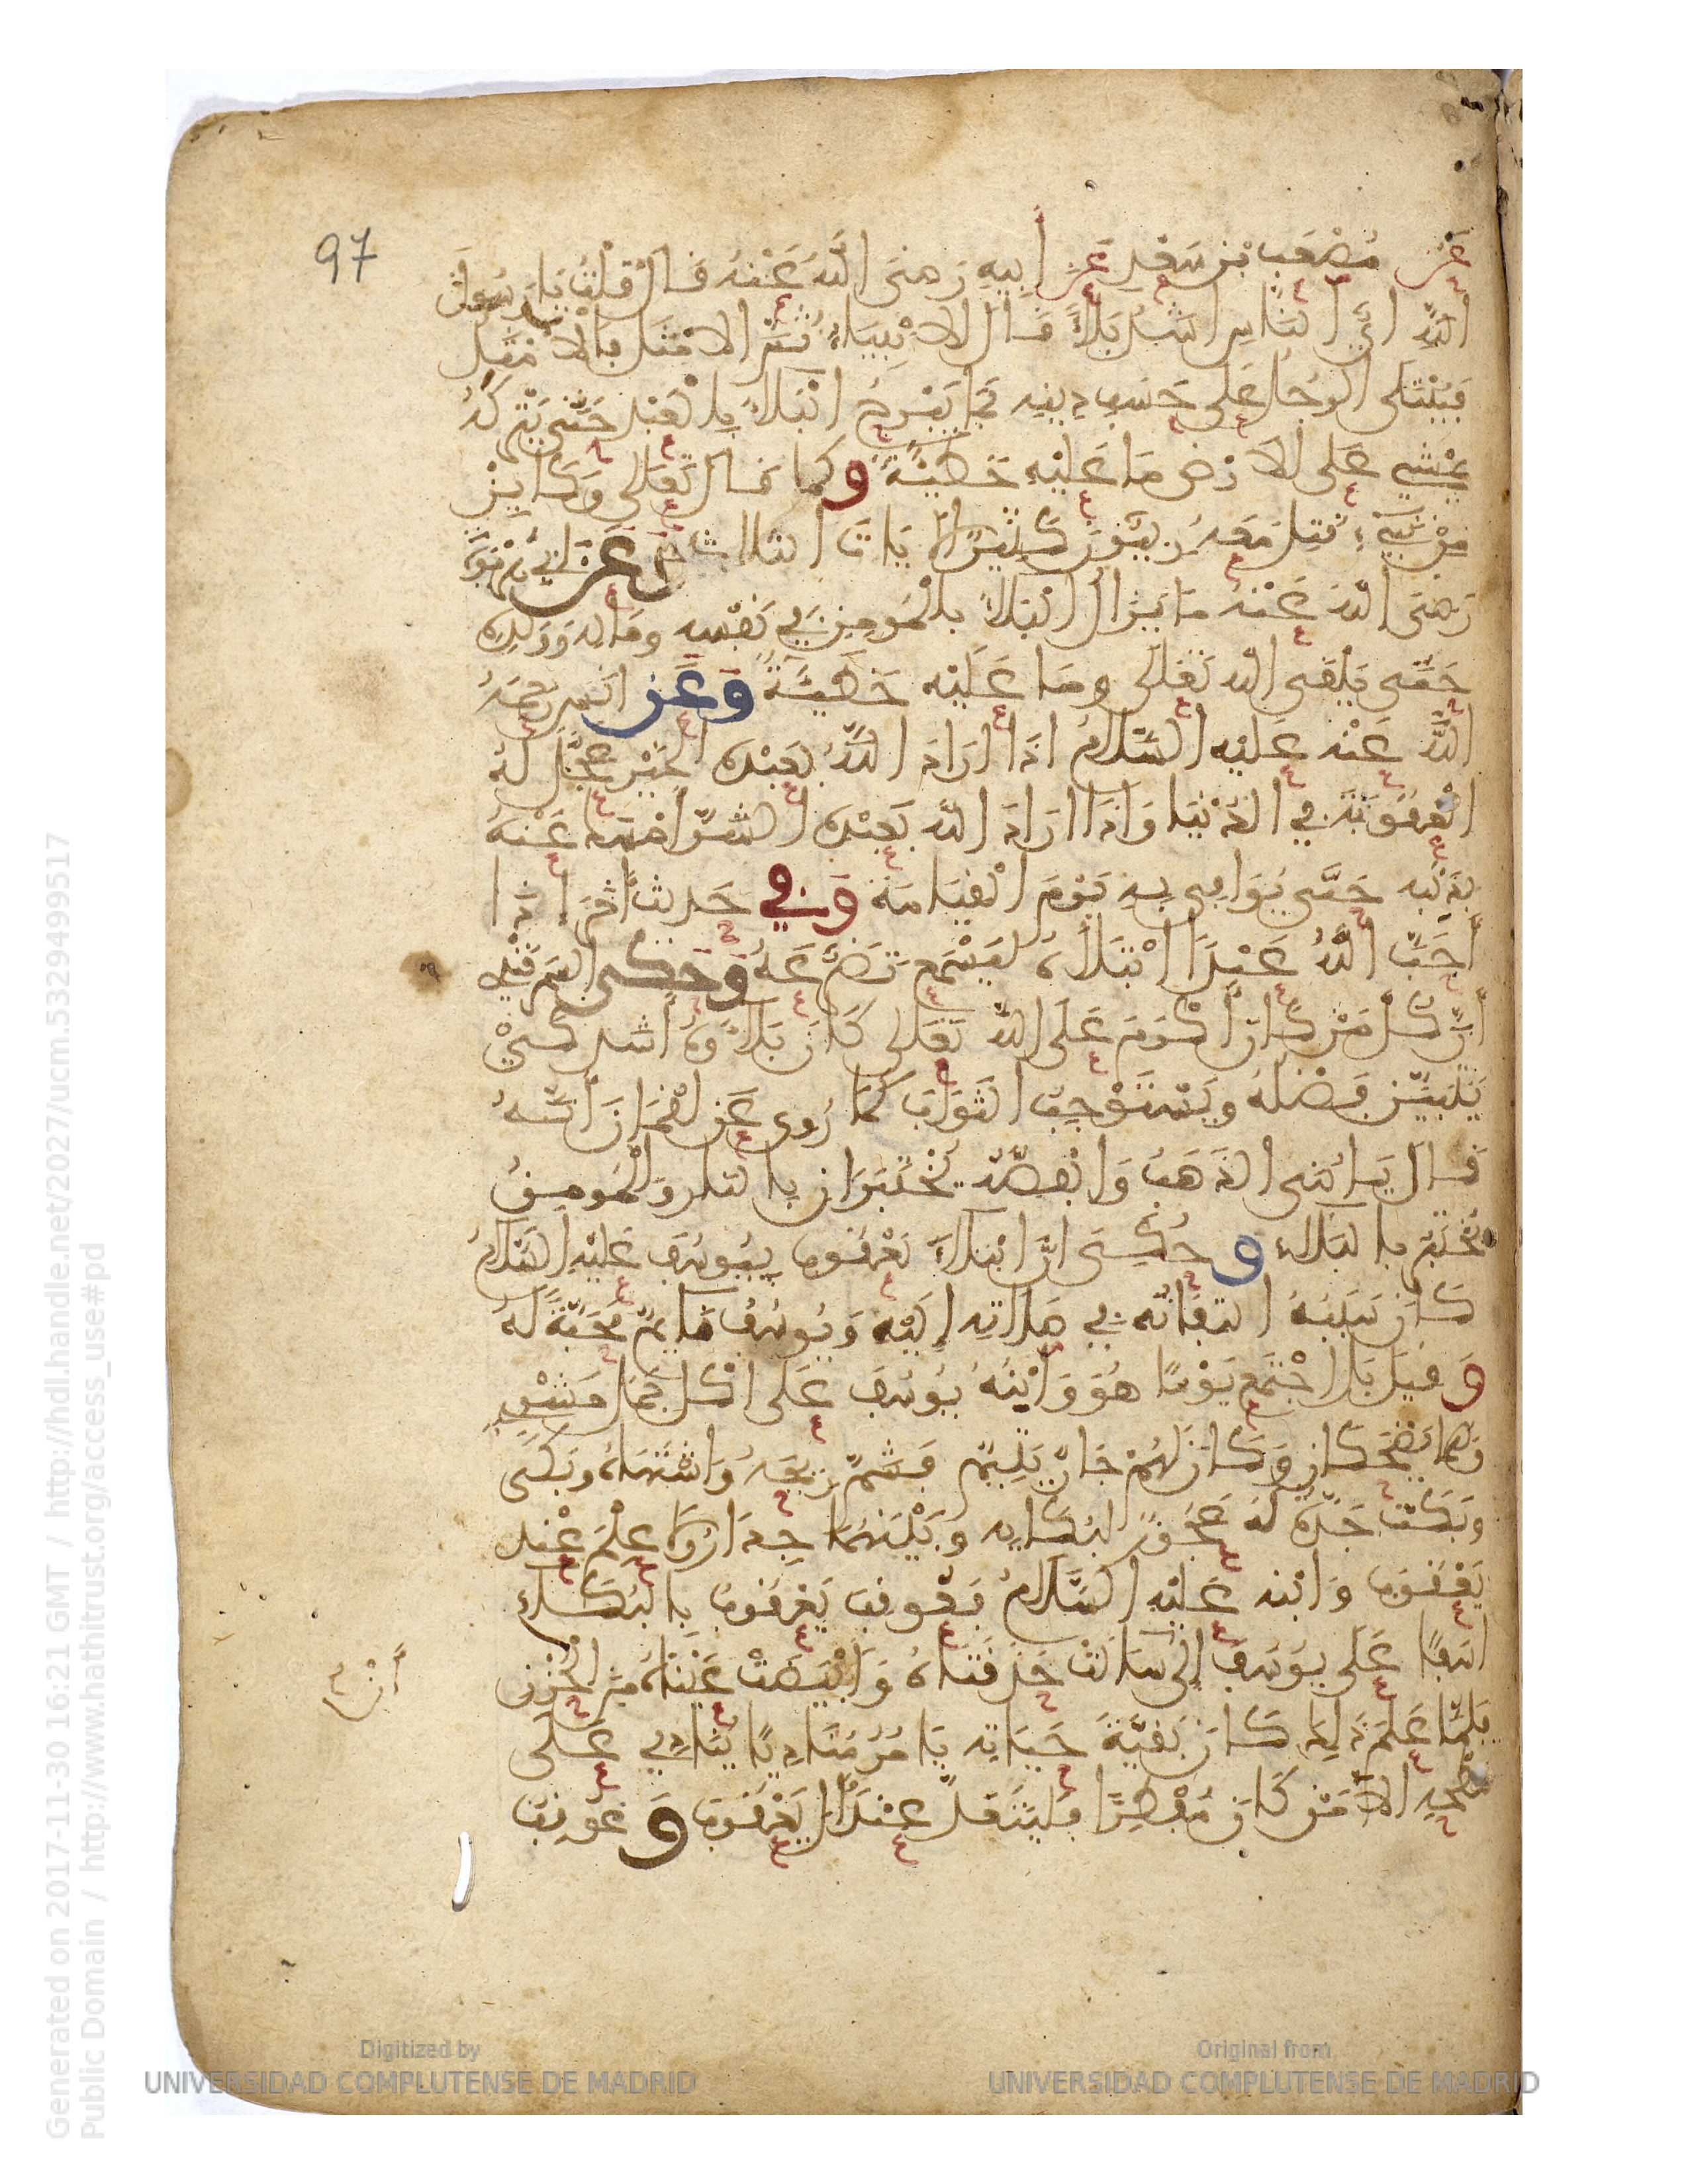 97
عَنْ مُصْعَب بْنِ سَعْدٍ عَنْ أَبِيهِ رَضِيَ اللَّهُ عَنْهُ قَالَ قُلْتُ يَا رَسُولَ
اللَّهِ أَيُّ النَّاسِ أَشَدُّ بَلَاءً قَالَ الْأَنْبِيَاءُ ثُمَّ الْأَمْثَلُ بِالْأَمْثَلِ
فَيُبْتَلَى الرَّجُلُ عَلَى حَسَبِ دِينِهِ فَمَا يَبْرَحُ الْبَلَاءُ بِالْعَبْدِ حَتَّى يَتْرُكَهُ
يَمْشِي عَلَى الْأَرْضِ مَا عَلَيْهِ خَطِيئَةٌ وكما قال تَعَالَى وَكَأَيِّنْ
مِنْ نَبِيءٍ قُتِلَ مَعَهُ رِبِّيُّونَ كَثِيرٌ الآيَاتَ الثلاث وَعَنْ أَبِي هُرَيْرَةَ
رَضِيَ اللَّهُ عَنْهُ مَا يَزَالُ الْبَلَاءُ بِالْمُومِنِ فِي نَفْسِهِ وَمَالِهِ وَوَلَدِهِ
حَتَّى يَلْقَى اللَّهَ تَعَالَى وَمَا عَلَيْهِ خَطِيئَةٌ وَعَنْ أَنَسٍ رَضِيَ
اللَّهُ عَنْهُ عَلَيْهِ السَّلَامُ إِذَا أَرَادَ اللَّهُ بِعَبْدِهِ الْخَيْرَ عَجَّلَ لَهُ
الْعُقُوبَةَ فِي الدُّنْيَا وَإِذَا أَرَادَ اللَّهُ بِعَبْدِهِ الشَّرَّ أَمْسَكَ عَنْهُ
بِذَنْبِهِ حَتَّى يُوَافِيَ بِهِ يَوْمَ الْقِيَامَةِ وَفِي حَدِيثٍ آخَرَ إِذَا
أَحَبَّ اللَّهُ عَبْدًا ابْتَلَاهُ لِيَسْمَعَ تَضَرُّعَهُ وَحَكَى السَّمَرْقَنْدِي
أَنَّ كُلَّ مَنْ كَانَ أَكْرَمَ عَلَى اللَّهِ تَعَالَى كَانَ بَلَاؤُهُ أَشَدَّ كَيْ
يَتَبَيَّنَ فَضْلُهُ وَيَسْتَوْجِبَ الثَّوَابَ كَمَا رُوِيَ عَنْ لُقْمَانَ أَنَّهُ
قَالَ يَا بُنَيَّ الذَّهَبُ وَالْفِضَّةُ يُخْتَبَرَانِ بِالنَّارِ وَالْمُومِنُ
يُخْتَبَرُ بِالْبَلَاءِ وَحُكِيَ أَنَّ ابْتِلَاءَ يَعْقُوبَ بِيُوسُفَ عَلَيْهِ السَّلَامُ
كَانَ سَبَبُهُ الْتِفَاتَهُ فِي صَلَاتِهِ إِلَيْهِ وَيُوسُفُ نَائِمٌ مَحَبَّةً لَهُ
وَقِيلَ بَلِ اجْتَمَعَ يَوْمًا هُوَ وَابْنُهُ يُوسُفُ عَلَى أَكْلِ حَمَلٍ مَشْوِيٍّ
وَهُمَا يَضْحَكَانِ وَكَانَ لَهُمْ جَارٌ يَتِيمٌ فَشَمَّ رِيحَهُ وَاشْتَهَاهُ وَبَكَى
وَبَكَتْ جَدَّةٌ لَهُ عَجُوزٌ لِبُكَائِهِ وَبَيْنَهُمَا جِدَارٌ وَلَا عِلْمَ عِنْدَ
يَعْقُوبَ وَابْنِهِ عَلَيْهِ السَّلَامُ فَعُوقِبَ يَعْقُوبُ بِالْبُكَاءِ
أَسَفًا عَلَى يُوسُفَ إِلَى أَنْ سَالَتْ حَدَقَتَاهُ وَابْيَضَّتْ عَيْنَاهُ مِنَ الْحُزْنِ
فَلَمَّا عَلِمَ ذَلِكَ كَانَ بَقِيَّةَ حَيَاتِهِ يَامُرُ مُنَادِيًا يُنَادِي عَلَى
سَطْحِهِ أَلَا مَنْ كَانَ مُفْطِرًا فَلْيَتَغَدَّ عِنْدَ آلِ يَعْقُوبَ وَعُوقِبَ